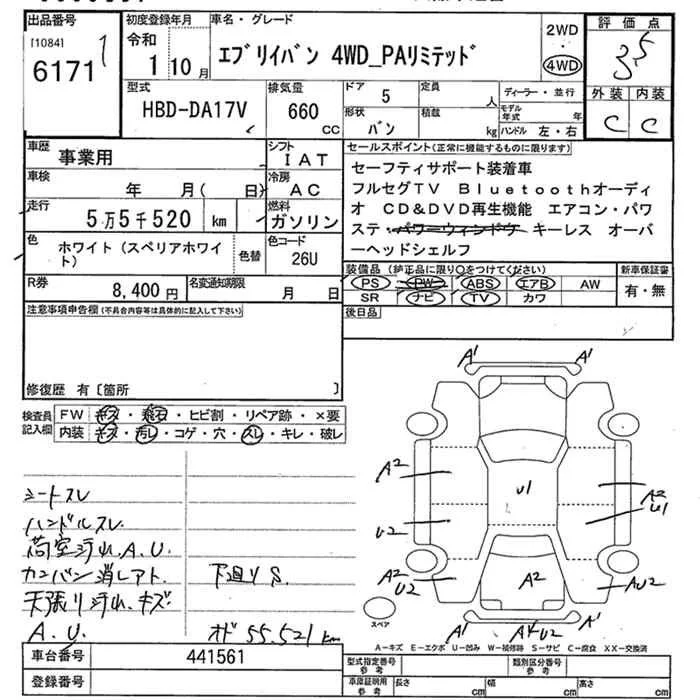 出品番号
[1084]
6171
初度登録年月
令和
1 10月
車名・グレード
エブリイバン 4WD_PAリミテッド
2WD
4WD
評価点
3.5
外装 内装
C C
型式
HBD-DA17V
排気量
660
CC
ドア 5
形状
バン
定員
人
積載
kg
ディーラー・並行
モデル年式 年
ハンドル 左・右
車歴 事業用
シフト
IAT
車検 年 月( 日)
冷房
AC
走行 5万5千520 km
燃料
ガソリン
色 ホワイト(スペリアホワイ
ト)
色替
色コード
26U
R券 8,400円
名変通知期限
月 日
セールスポイント(正常に機能するものに限ります)
セーフティサポート装着車
フルセグTV Bluetoothオーディ
オ CD&DVD再生機能 エアコン・パワ
ステ・パワーウィンドウ キーレス オーバ
ーヘッドシェルフ
装備品(純正品に限り○をつけてください)
PS PW ABS エアB AW
SR ナビ TV カワ
新車保証書
有・無
後日品
注意事項申告欄(不具合内容等は具体的に記入して下さい)
修復歴 有〔箇所 〕
検査員
記入欄
FW キズ・飛石・ヒビ割・リペア跡・×要
内装 キズ・汚レ・コゲ・穴・スレ・キレ・破レ
シートスレ
ハンドルスレ
荷室汚れ.A.U.
カンバン消しアト.
下廻りS.
天張り汚れ.キズ.
A.U.
オド55.521km
A1 A1
A2
U2
A2
U2
U1
A2
U1
AU2
A2
A1 A4U2 A1
スペア
A-キズ E-エクボ U-凹み W-補修跡 S-サビ C-腐食 XX-交換済
車台番号 441561
登録番号
型式指定番号
参考
類別区分番号
参考
車庫証明用
参考
長さ cm 幅 cm 高さ cm